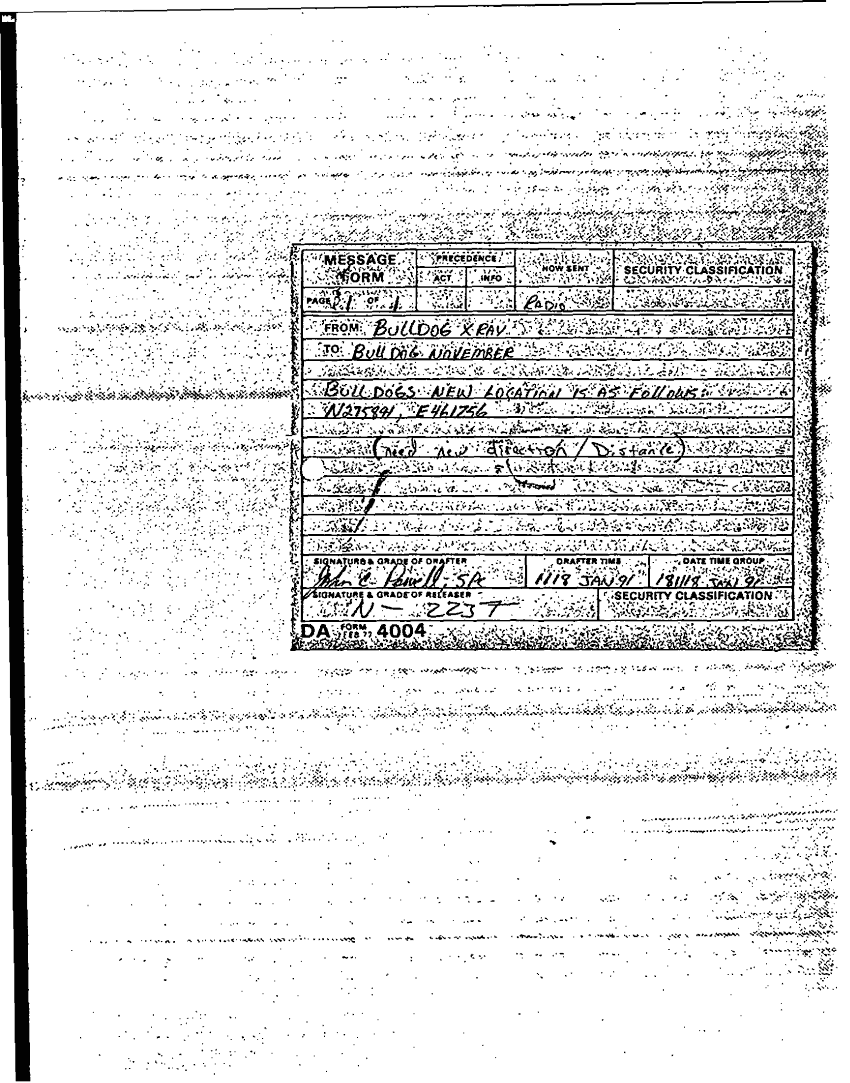 MESSAGE FORM
PRECEDENCE
ACT INFO
HOW SENT
SECURITY CLASSIFICATION
PAGE 1 OF 1
RADIO
FROM: BULLDOG XRAY
TO: BULLDOG NOVEMBER
BULLDOGS NEW LOCATION IS AS FOLLOWS:
N275891, E461756
(need new direction / Distance)
SIGNATURE & GRADE OF DRAFTER
DRAFTER TIME
DATE TIME GROUP
John C. SPC
1118 JAN 91
181118 JAN 91
SIGNATURE & GRADE OF RELEASER
SECURITY CLASSIFICATION
N - 2237
DA FORM FEB 77 4004